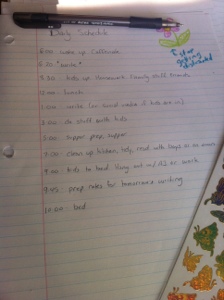 Daily Schedule
* stop getting distracted
6:00 wake up, Caffeinate
6:30 *write*
8:30 kids up, Homework, family stuff, friends
12:00 lunch
1:00 write (or social media if kids are in)
2:00 do stuff with kids
5:00 supper prep, supper
7:00 clean up kitchen, help, read with boys or
8:00 kids to bed, hang out w/ AJ or work
9:45 prep notes for tomorrows writing
10:00 bed